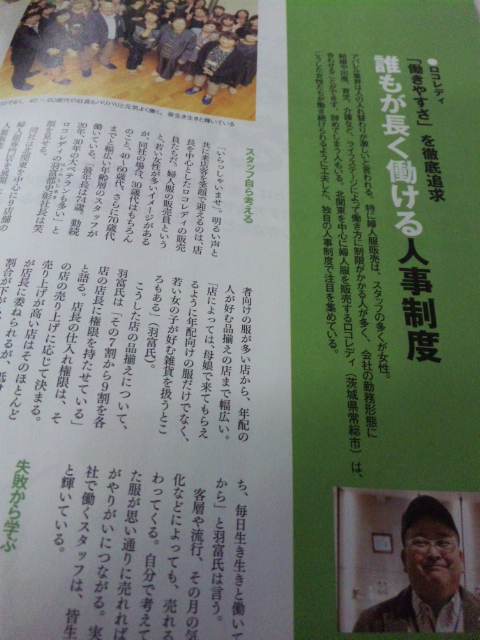 ●ロコレディ
「働きやすさ」を徹底追求
誰もが長く働ける人事制度
アパレル業界は人の入れ替わりが激しいと言われる。特に婦人服販売は、スタッフの多くが女性。
結婚や出産、育児、介護など、ライフステージによって働き方に制限がかかる人が多く、会社の勤務形態に
合わせることができず、辞めてしまう人もいる。北関東を中心に婦人服を販売するロコレディ（茨城県常総市）は、
こうした女性たちが働き続けられるように工夫した、独自の人事制度で注目を集めている。
歳代の社員もバリバリと元気よく働く。皆生き生きと輝いている
スタッフ自ら考える
「いらっしゃいませ」。明るい声と
共に来店客を笑顔で迎えるのは、店
長を中心としたロコレディの販売
員たちだ。婦人服の販売員という
と、若い女性が多いイメージがある
が、同社の場合、30歳代はもちろん
のこと、40〜60歳代、さらに70歳代
までと幅広い年齢層のスタッフが
働いている。「最年長は74歳。勤続
20年、30年のベテランも多い」と
ロコレディの羽富
顔を見せる。
同社は北関東を中心に
者向けの服が多い店から、年配の
人が好む品揃えの店まで幅広い。
「店によっては、母娘で来てもらえ
るように年配向けの服だけでなく、
若い女の子が好む雑貨を扱うとこ
ろもある」（羽富氏）。
こうした店の品揃えについて、
羽富氏は「その7割から9割を各
店の店長に権限を持たせている」
と語る。店長の仕入れ権限は、そ
の店の売り上げに応じて決まる。
売り上げが高い店はそのほとんど
が店長に委ねられるが、低
ち、毎日生き生きと働いて
から」と羽富氏は言う。
客層や流行、その月の気
化などによっても、売れる
わってくる。自分で考えて
た服が思い通りに売れれば
がやりがいにつながる。実
社で働くスタッフは、皆生
と輝いている。
失敗から学ぶ